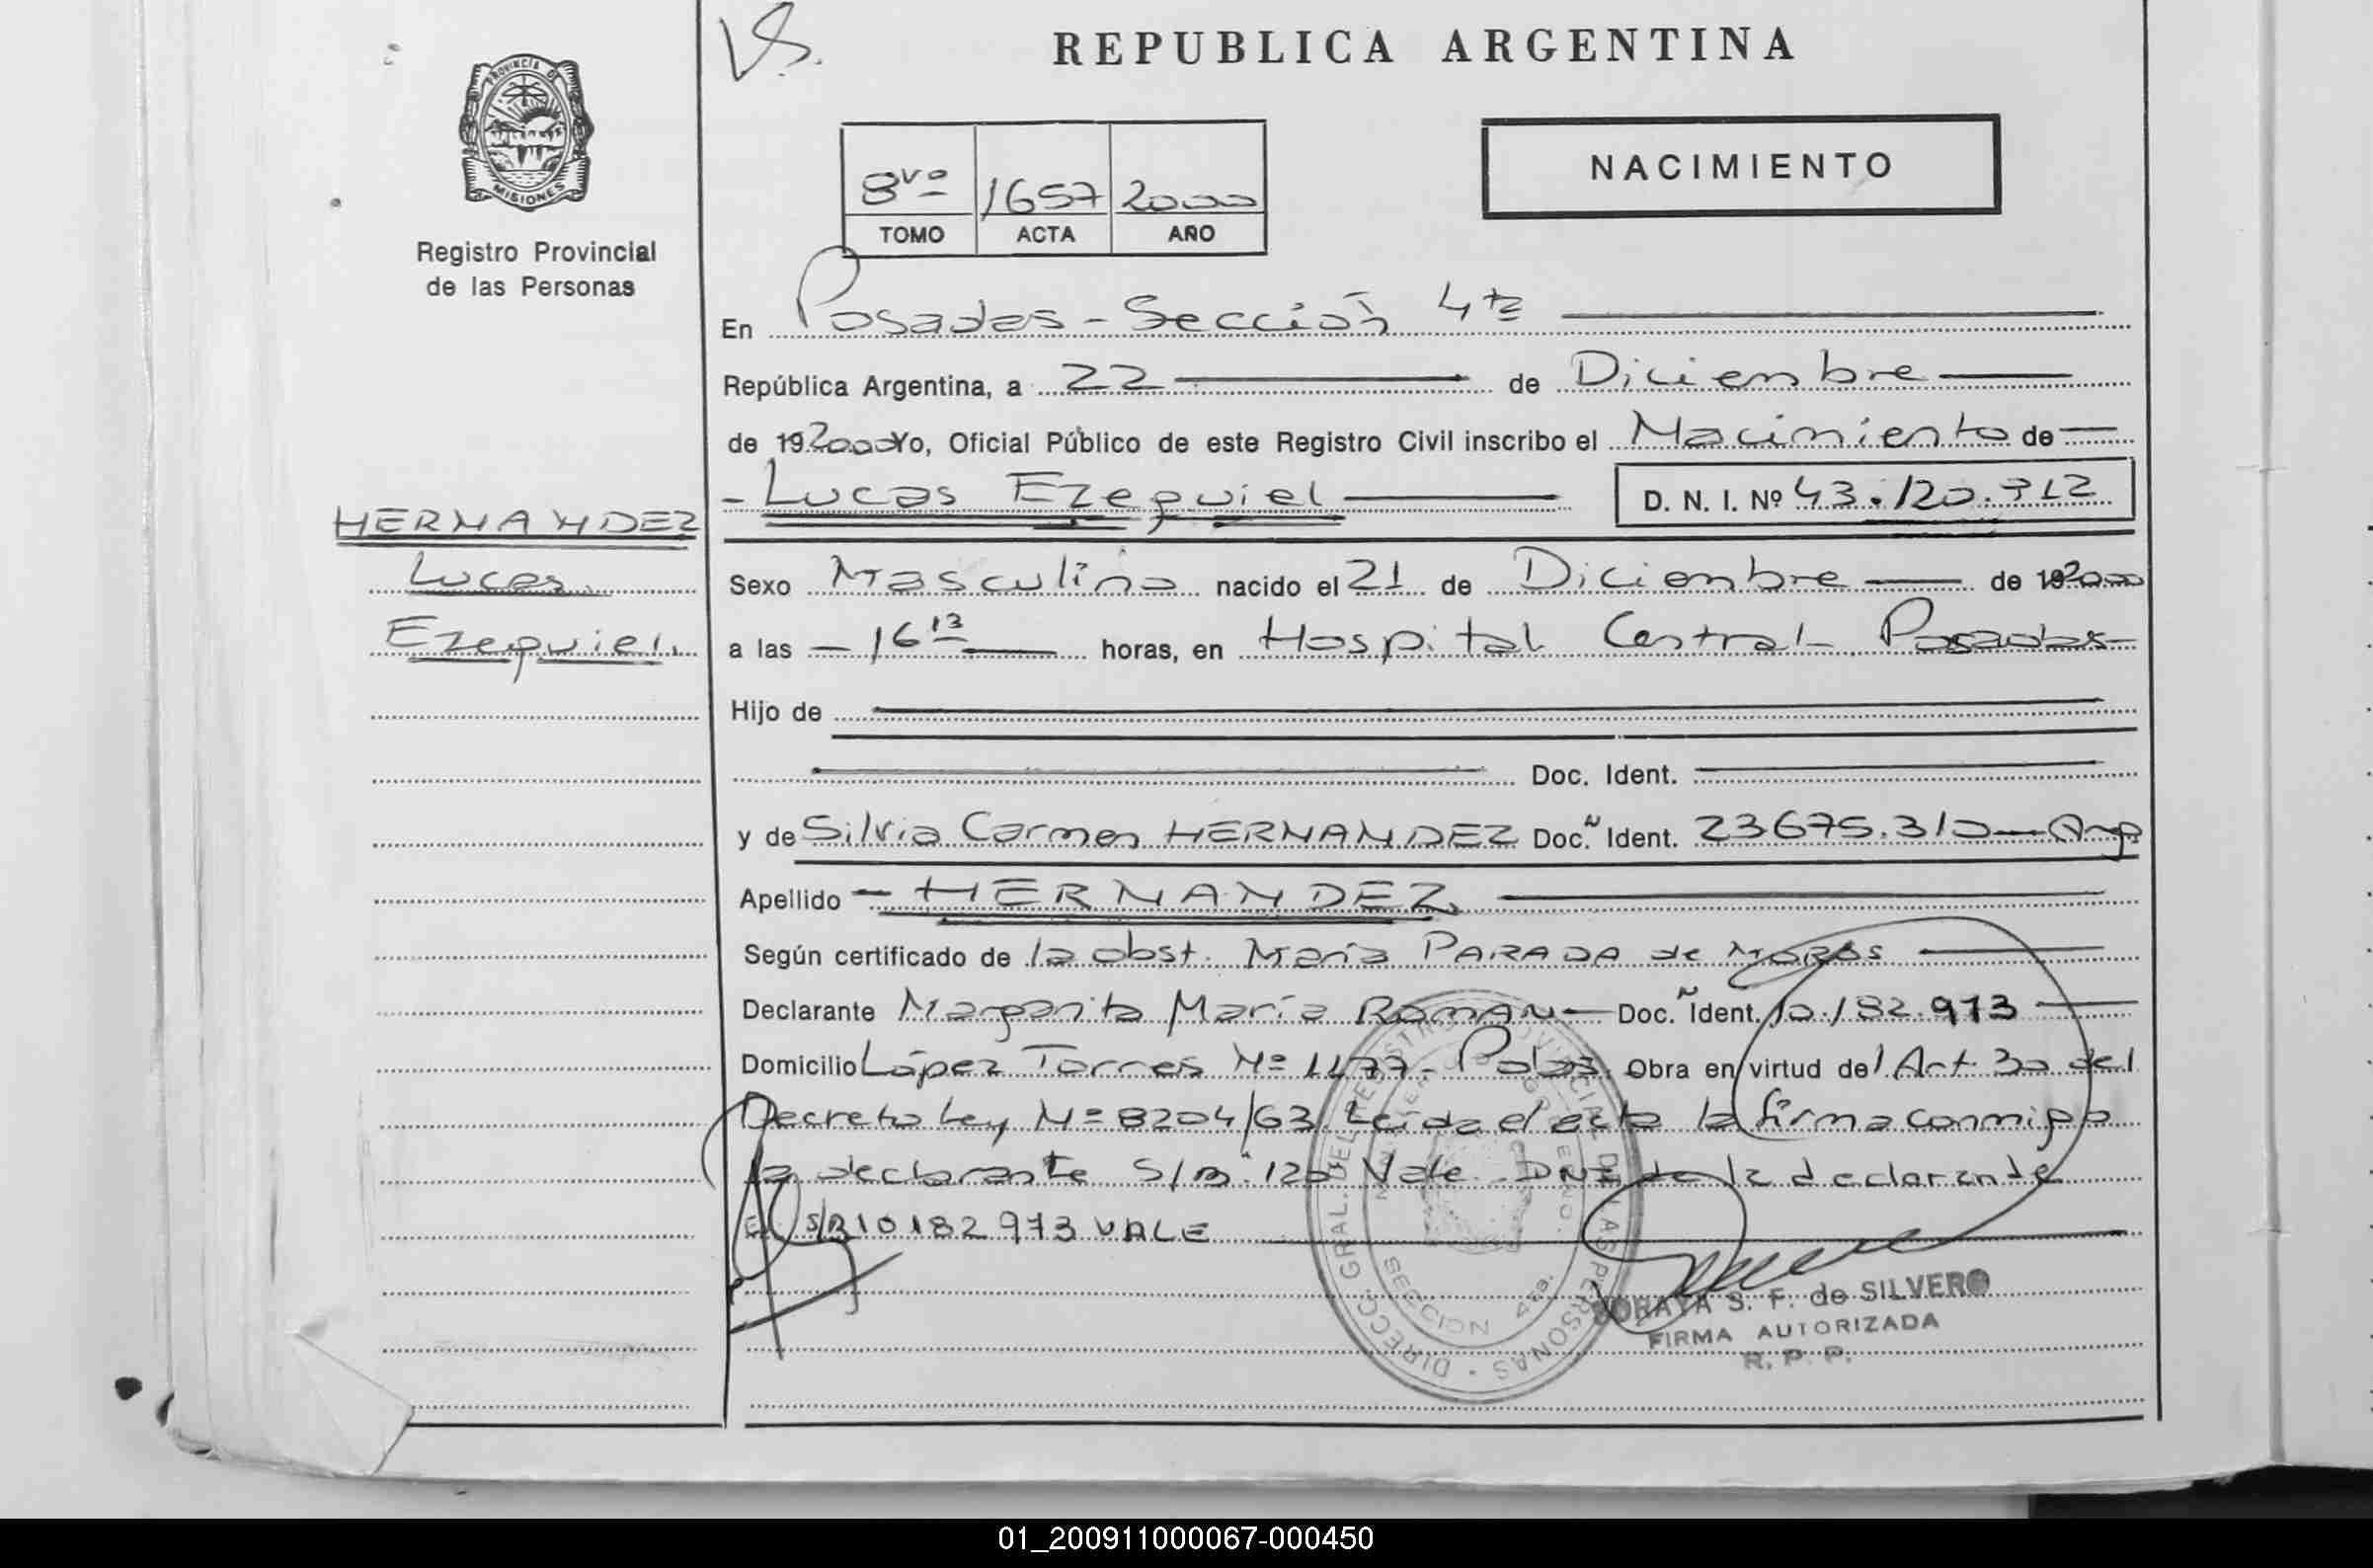 VS.
REPUBLICA ARGENTINA
PROVINCIA DE
MISIONES
Registro Provincial
de las Personas
NACIMIENTO
8vo 1657 2000
TOMO ACTA AÑO
En Posadas - Sección 4ta
República Argentina, a 22 de Diciembre
de 192000 Yo, Oficial Público de este Registro Civil inscribo el Nacimiento de
- Lucas Ezequiel
D. N. I. Nº 43.120.312
HERNANDEZ
Lucas
Ezequiel.
Sexo Masculino nacido el 21 de Diciembre de 192000
a las - 16 13 horas, en Hospital Central - Posadas -
Hijo de
Doc. Ident.
y de Silvia Carmen HERNANDEZ Doc. Ident. 23675.310 - Arg
Apellido - HERNANDEZ
Según certificado de la obst. María PARADA de MORAS
Declarante Margarita María ROMAN - Doc. Ident. 10.182.973
Domicilio López Torres Nº 1177 - Pdas. Obra en virtud del Art 30 del
Decreto Ley Nº 8204/63. Leida el acta la firma conmigo
la declarante S/B: 120 Vale. DNI de la declarante
S/B 10182 973 VALE
DIRECC. GRAL. DEL REGISTRO PROVINCIAL DE LAS PERSONAS
SECCION 4ta.
SORAYA S. F. de SILVERO
FIRMA AUTORIZADA
R. P. P.
01_200911000067-000450